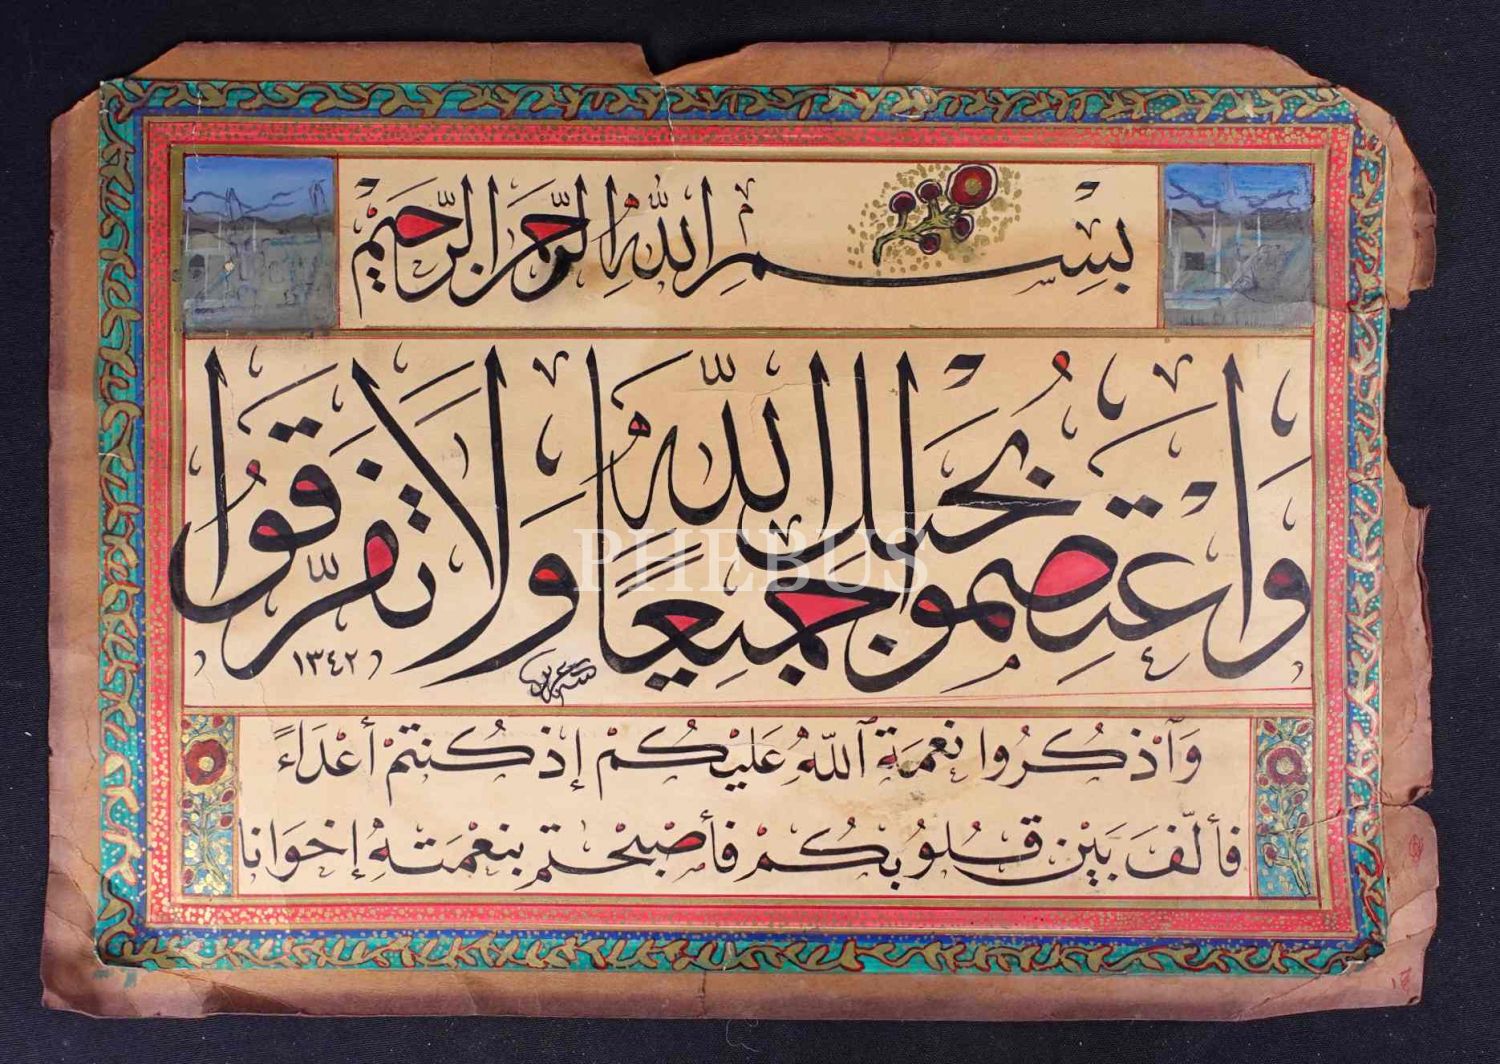 بسم الله الرحمن الرحيم
واعتصموا بحبل الله جميعًا ولا تفرّقوا
١٣٤٢
PHEBUS
وَٱذْكُرُوا نِعْمَةَ ٱللّٰهِ عَلَيْكُمْ إِذْ كُنتُمْ أَعْدَاءً
فَأَلَّفَ بَيْنَ قُلُوبِكُمْ فَأَصْبَحْتُمْ بِنِعْمَتِهِ إِخْوَانًا